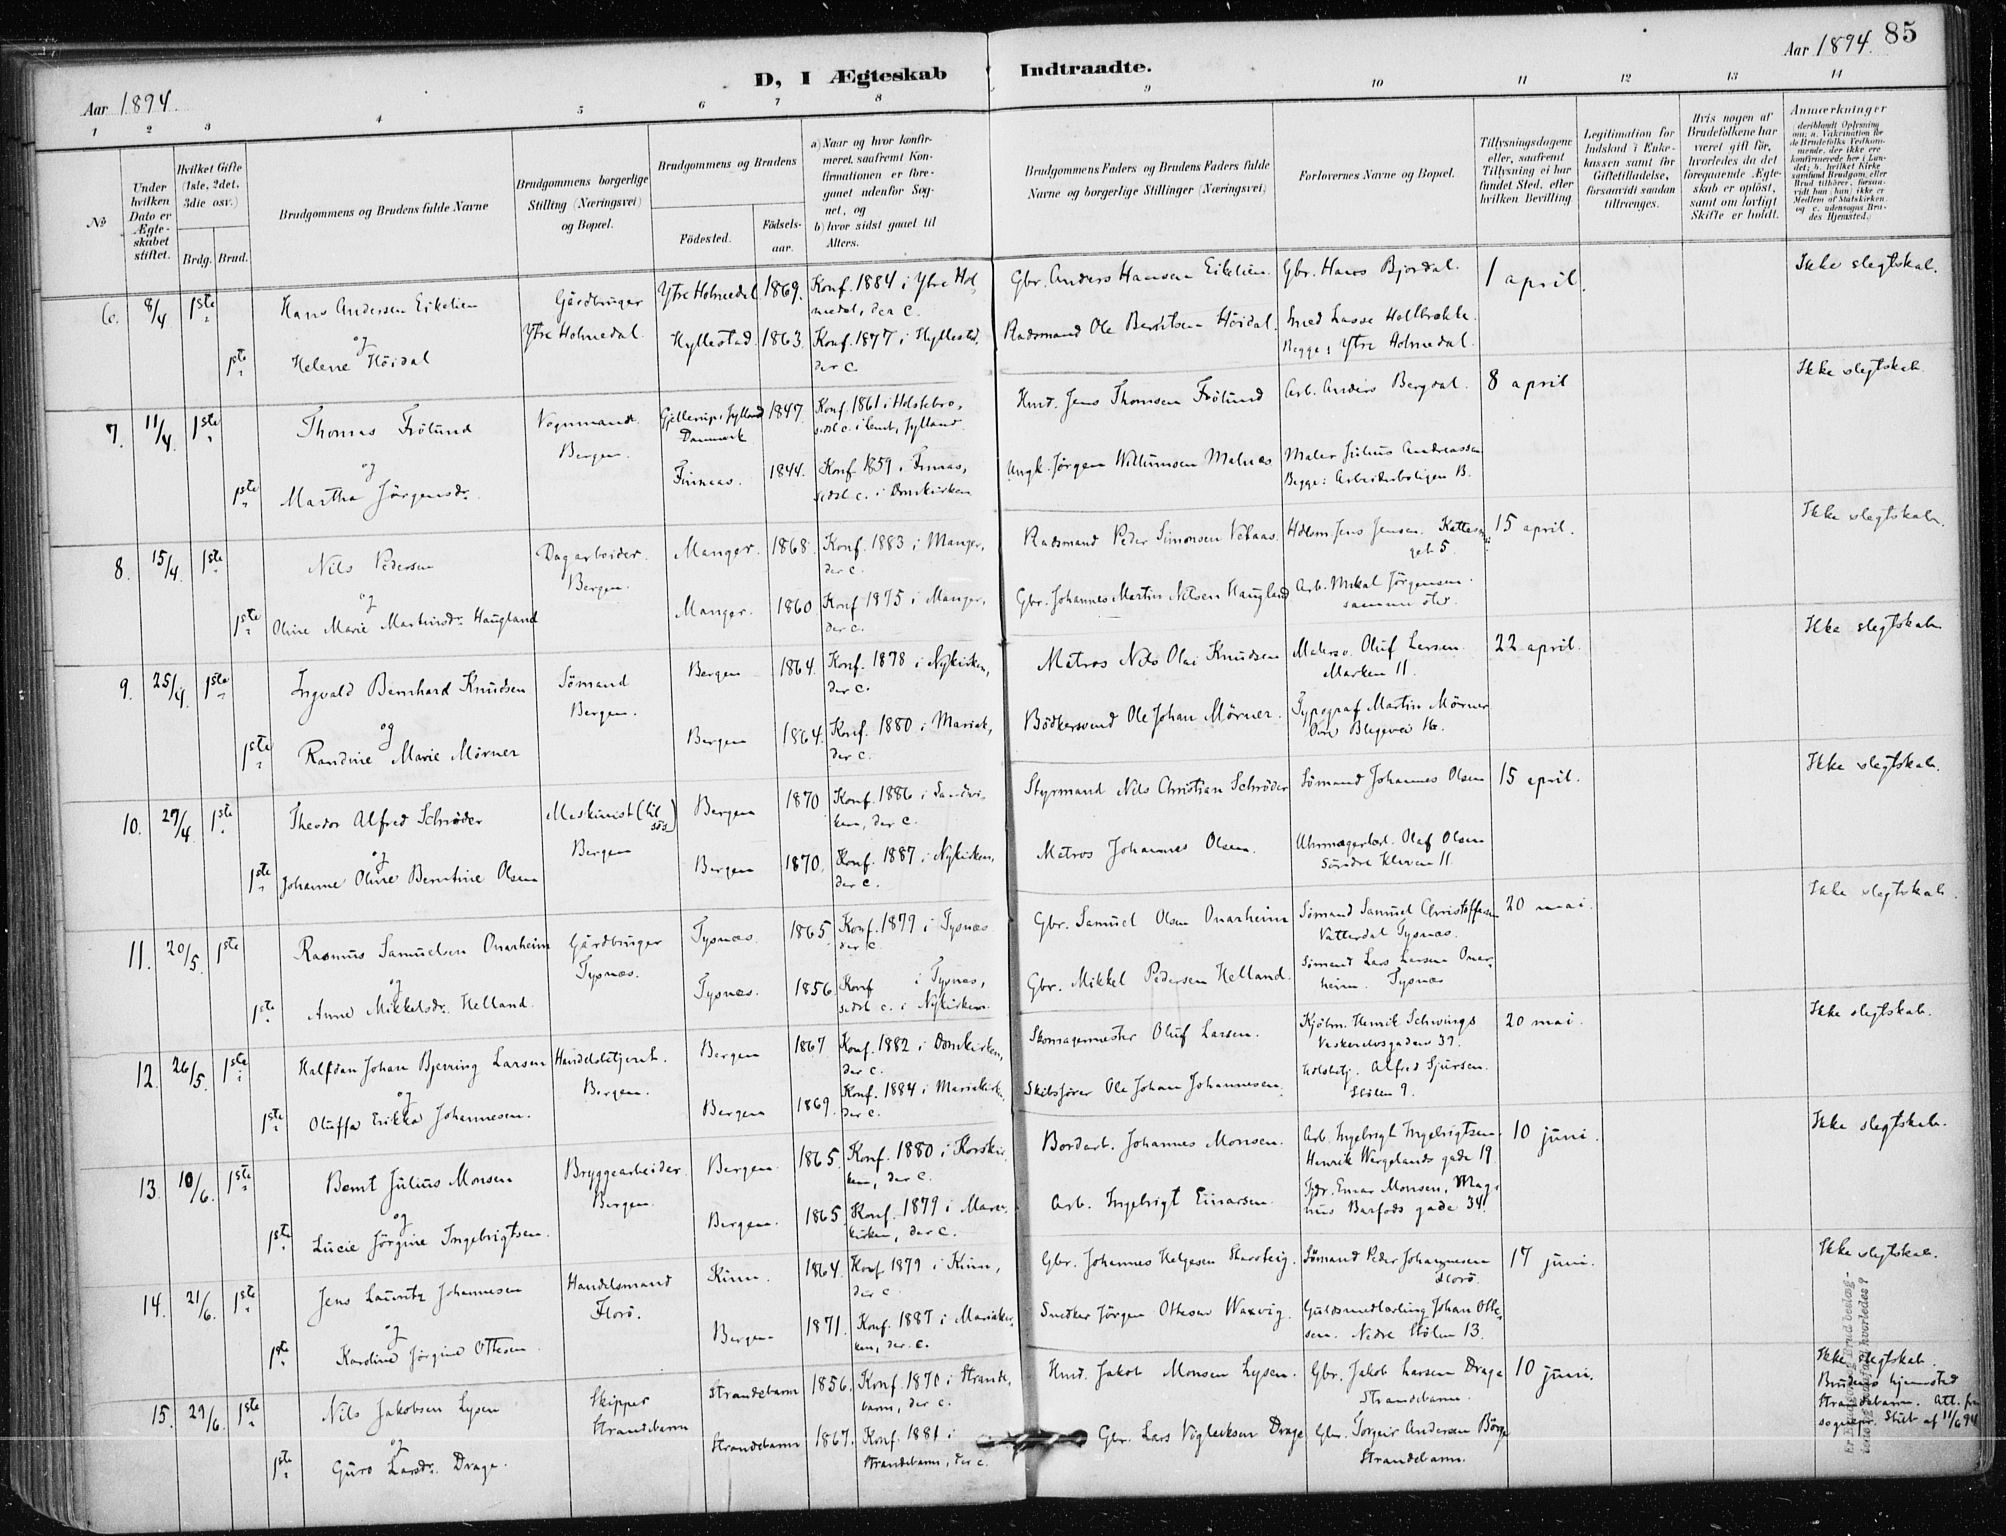 85
Aar 1894.
D, I Ægteskab Indtraadte.
Aar 1894.
1 2 3 4 5 6 7 8 9 10 11 12 13 14
No
Under hvilken Dato er Ægteskabet stiftet.
Hvilket Gifte (1ste, 2det, 3die osv.)
Brdg. Brud.
Brudgommens og Brudens fulde Navne
Brudgommens borgerlige Stilling (Næringsvei) og Bopæl.
Brudgommens og Brudens
Fødested.
Fødselsaar.
a) Naar og hvor konfirmeret, saafremt Konfirmationen er foregaaet udenfor Sognet, og
b) hvor sidst gaaet til Alters.
Brudgommens Faders og Brudens Faders fulde Navne og borgerlige Stillinger (Næringsvei)
Forlovernes Navne og Bopæl.
Tillysningsdagene eller, saafremt Tillysning ei har fundet Sted, efter hvilken Bevilling.
Legitimation for Indskud i Enkekassen samt for Giftetilladelse, forsaavidt saadan tiltrænges.
Hvis nogen af Brudefolkene har været gift før, hvorledes da det foregaaende Ægteskab er opløst, samt om lovligt Skifte er holdt.
Anmærkninger
(deriblandt Oplysning om: a. Vakcination for de Brudefolks Vedkommende, der ikke ere konfirmerede her i Landet; b. hvilket Kirkesamfund Brudgom eller Brud tilhører, forsaavidt han (hun) ikke er Medlem af Statskirken, og c. udensogns Brudes Hjemsted.)
6. 8/4 1ste Hans Andersen Eikelien Gårdbruger Ytre Holmedal 1869. Konf. 1884 i Ytre Holmedal, der c. Gbr. Anders Hansen Eikelien. Gbr. Hans Bjordal. 1 april. Ikke slegtskab.
og Ytre Holmedal.
1ste Helene Höidal Hyllestad. 1863. Konf. 1877 i Hyllestad, der c. Radsmand Ole Berntsen Höidal. Smed Lasse Holtbrekke. Begge: Ytre Holmedal.
7. 11/4 1ste Thomas Frölund Vognmand. Gjellerup, Jylland Danmark 1847. Konf. 1861 i Holstebro, sidst c. i Lemt, Jylland. Hmd. Jens Thomsen Frölund Arb. Anders Bergdal. 8 april Ikke slegtskab.
og Bergen.
1ste Martha Jörgensdr. Finnaas. 1844. Konf. 1859 i Finnaas, sidst c. i Domkirken Ungk. Jörgen Willumsen Malnæs Maler Julius Andreassen Begge: Arbeiderboligen B.
8. 15/4 1ste Nils Pedersen Dagarbeider. Manger. 1868. Konf. 1883 i Manger, der c. Radsmand Peder Simonsen Vetaas. Hdlsm. Jens Jensen. 15 april. Ikke slegtskab.
og Bergen.
1ste Oline Marie Martinsdr. Haugland Manger. 1860 Konf. 1875 i Manger, der c. Gbr. Johannes Martin Nilsen Haugland Arb. Mikal Jörgensen. samme sted.
9. 25/4 1ste Ingvald Bernhard Knudsen Sömand Bergen 1864. Konf. 1878 i Nykirken, der c. Matros Nils Olai Knudsen Oluf Larsen. Marken 11. 22 april. Ikke slegtskab.
og Bergen.
1ste Randine Marie Mörner Bergen 1864. Konf. 1880 i Mariak., der c. Bödkersvend Ole Johan Mörner. Typograf Martin Mörner Övre Blegevei 16.
10. 27/4 1ste Theodor Alfred Schröder Maskinist (tilsös) Bergen 1870 Konf. 1886 i Sandviken, der c. Styrmand Nils Christian Schröder Sömand Johannes Olsen 15 april. Ikke slegtskab.
og Bergen
1ste Johanne Oline Berntine Olsen Bergen 1870. Konf. 1887 i Nykirken, der c. Matros Johannes Olsen. Uhrmagerlærl. Olaf Olsen Söndre Kleven 11.
11. 20/5. 1ste Rasmus Samuelsen Onarheim Gårdbruger Tysnæs. 1865. Konf. 1879 i Tysnæs der c. Gbr. Samuel Olsen Onarheim Sömand Samuel Christoffersen Vatterdal Tysnæs. 20 mai. Ikke slegtskab.
og Tysnæs.
1ste Anne Mikkelsdr. Helland. Tysnæs. 1856. Konf i Tysnæs, sidst c. i Nykirken. Gbr. Mikkel Pedersen Helland. Sömand Lars Larsen Onarheim. Tysnæs
12. 26/5. 1ste Halfdan Johan Bjerring Larsen Handelsbetjent. Bergen 1867 Konf. 1882 i Domkirken, der c. Skomagermester Oluf Larsen. Kjöbm. Henrik Schwings 20 mai. Ikke slegtskab.
og Bergen.
1ste Oluffa Erikka Johannesen. Bergen 1869. Konf. 1884 i Mariakirk., der c. Skibsförer Ole Johan Johannesen. Alfred Sjursen. Stölen 9.
13. 10/6. 1ste Bernt Julius Monsen Bryggearbeider. Bergen. 1865. Konf. 1880 i Korskirken, der c. Bordarb. Johannes Monsen. Arb. Ingebrigt Ingebrigtsen. Henrik Wergelands gade 19 10 juni. Ikke slegtskab.
og Bergen.
1ste Lucie Jörgine Ingebrigtsen. Bergen. 1865. Konf. 1879 i Mariakirken, der c. Arb. Ingebrigt Einarsen. Einar Monsen, Magnus Barfods gade 34.
14. 21/6. 1ste Jens Lauritz Johannesen Handelsmand Kinn. 1864. Konf 1879 i Kinn, der c. Gbr. Johannes Helgesen Sömand Peder Johannesen Florö. 17 juni. Ikke slegtskab.
og Florö.
1ste Karoline Jörgine Ottesen. Bergen 1871. Konf. 1887 i Mariakirken, der c. Snedker Jörgen Ottesen Waxvig. Guldsmedlærling Johan Ottesen. Nedre Stölen 13.
15. 29/6. 1ste Nils Jakobsen Lysen Skipper Strandebarm 1856. Konf. 1870 i Strandebarm, der c. Hmd. Jakob Monsen Lysen. Gbr. Jakob Larsen Drage Strandebarm. 10 juni. Ikke slegtskab. Brudens hjemsted Strandebarm. Att. fra sognepr. Stub af 11/6 94
og Strandebarm
1ste Guro Larsdr. Drage. Strandebarm 1867. Konf. 1881 i Strandebarm, der c. Gbr. Lars Vigleiksen Drage Gbr. Torgeir Andersen Börge Strandebarm.